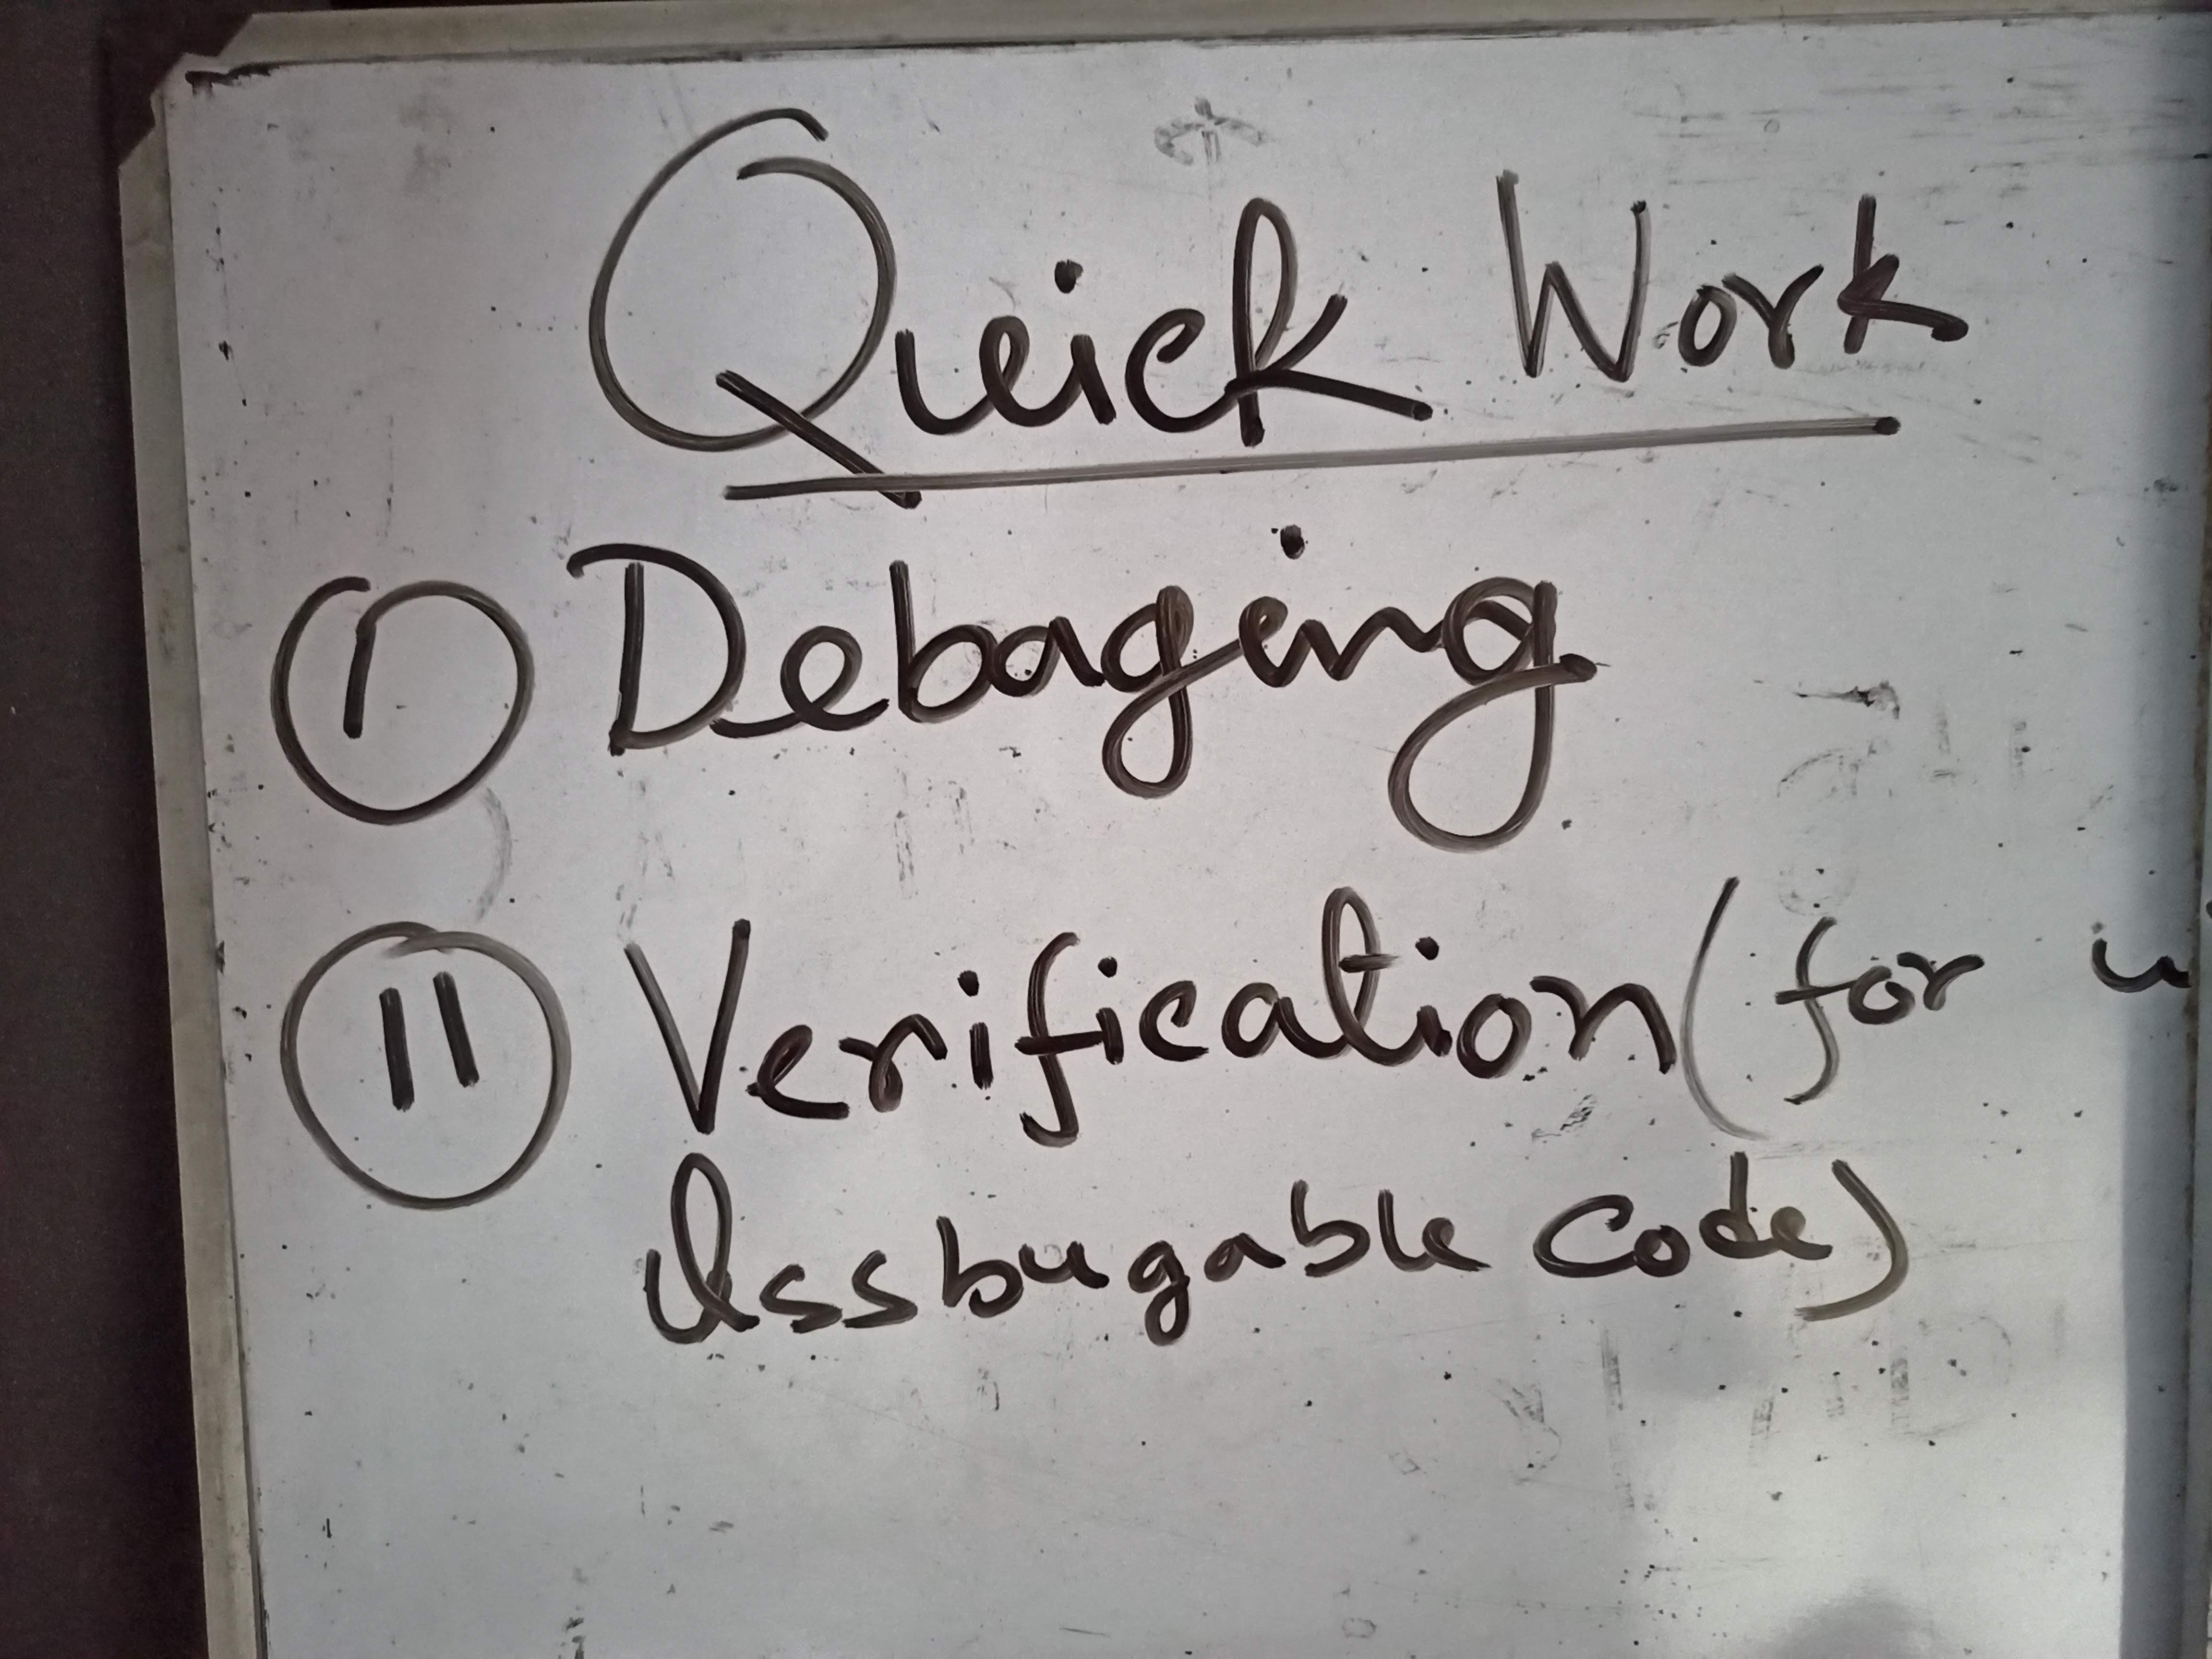 Quick Work
I Debaging
II Verification (for
Issbugable Code)